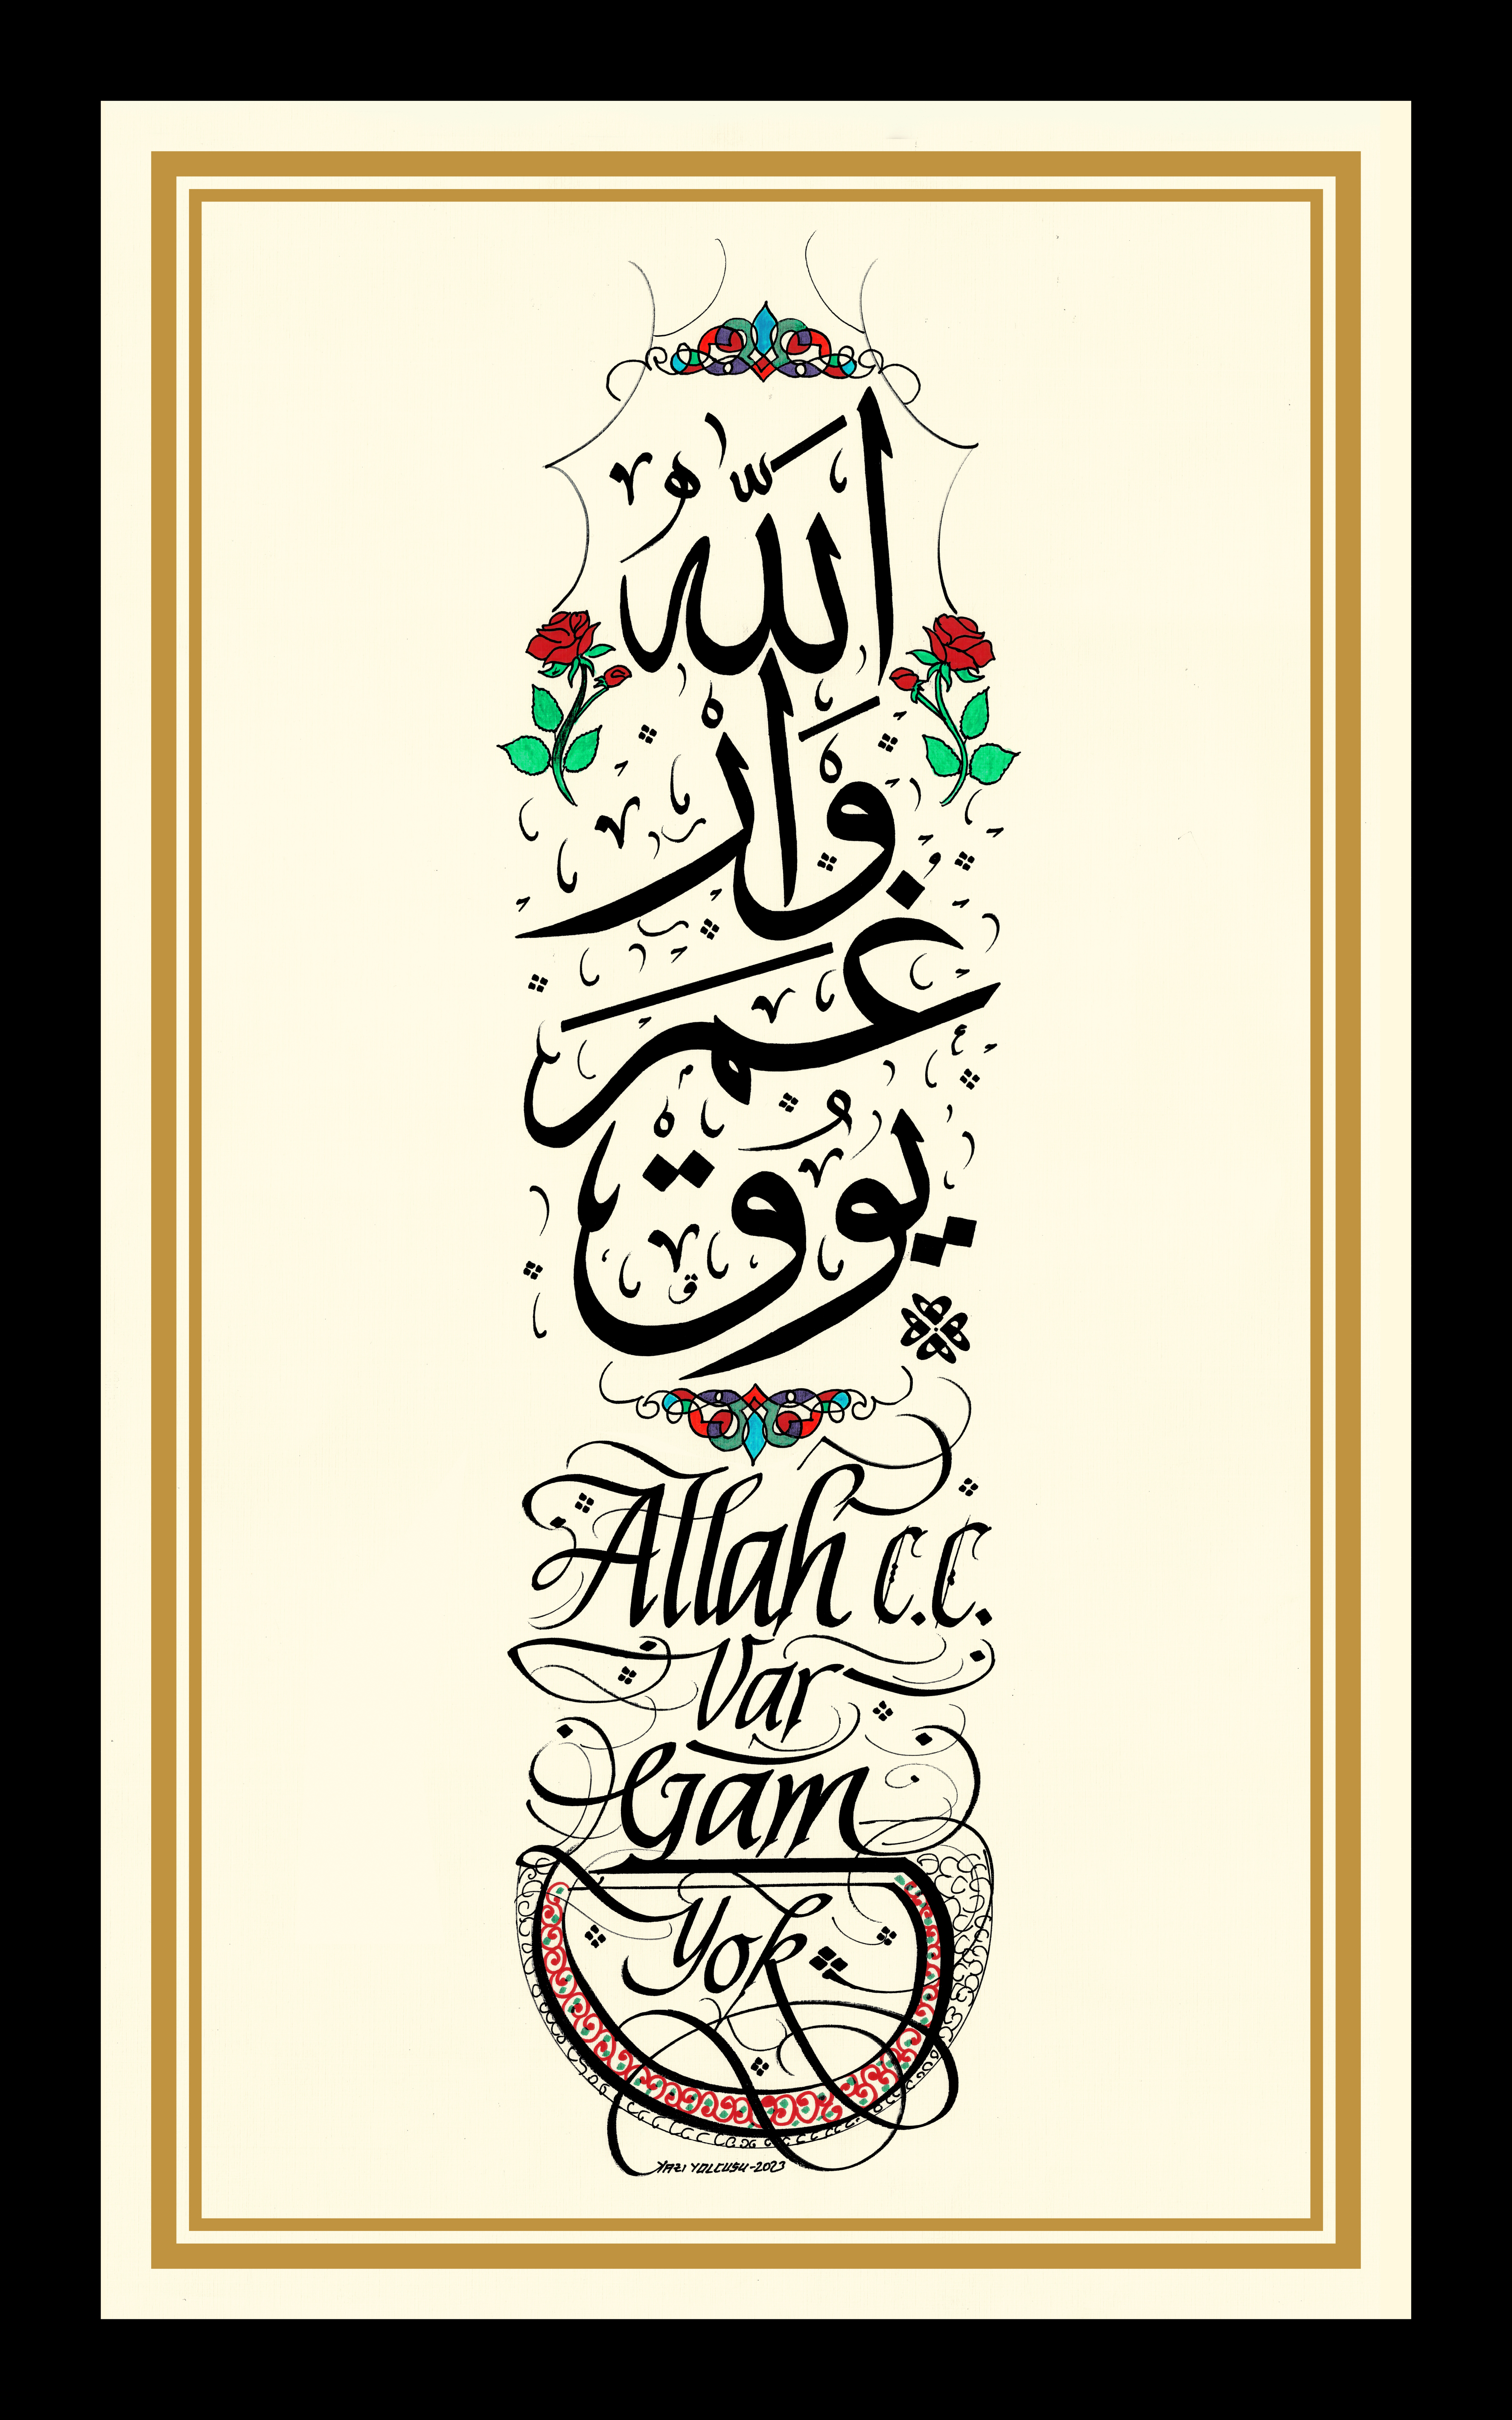 الله
وار
غم
يوق
Allah c.c.
Var
Gam
Yok
YAZI YOLCUSU-2023